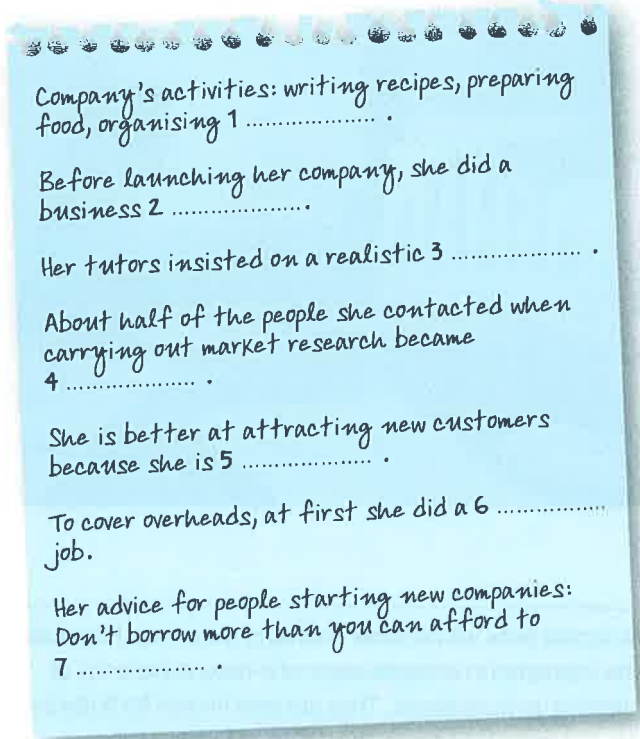 Company's activities: writing recipes, preparing
food, organising 1 .................... .
Before launching her company, she did a
business 2 .................... .
Her tutors insisted on a realistic 3 .................... .
About half of the people she contacted when
carrying out market research became
4 .................... .
She is better at attracting new customers
because she is 5 .................... .
To cover overheads, at first she did a 6 .................
job.
Her advice for people starting new companies:
Don't borrow more than you can afford to
7 .................... .